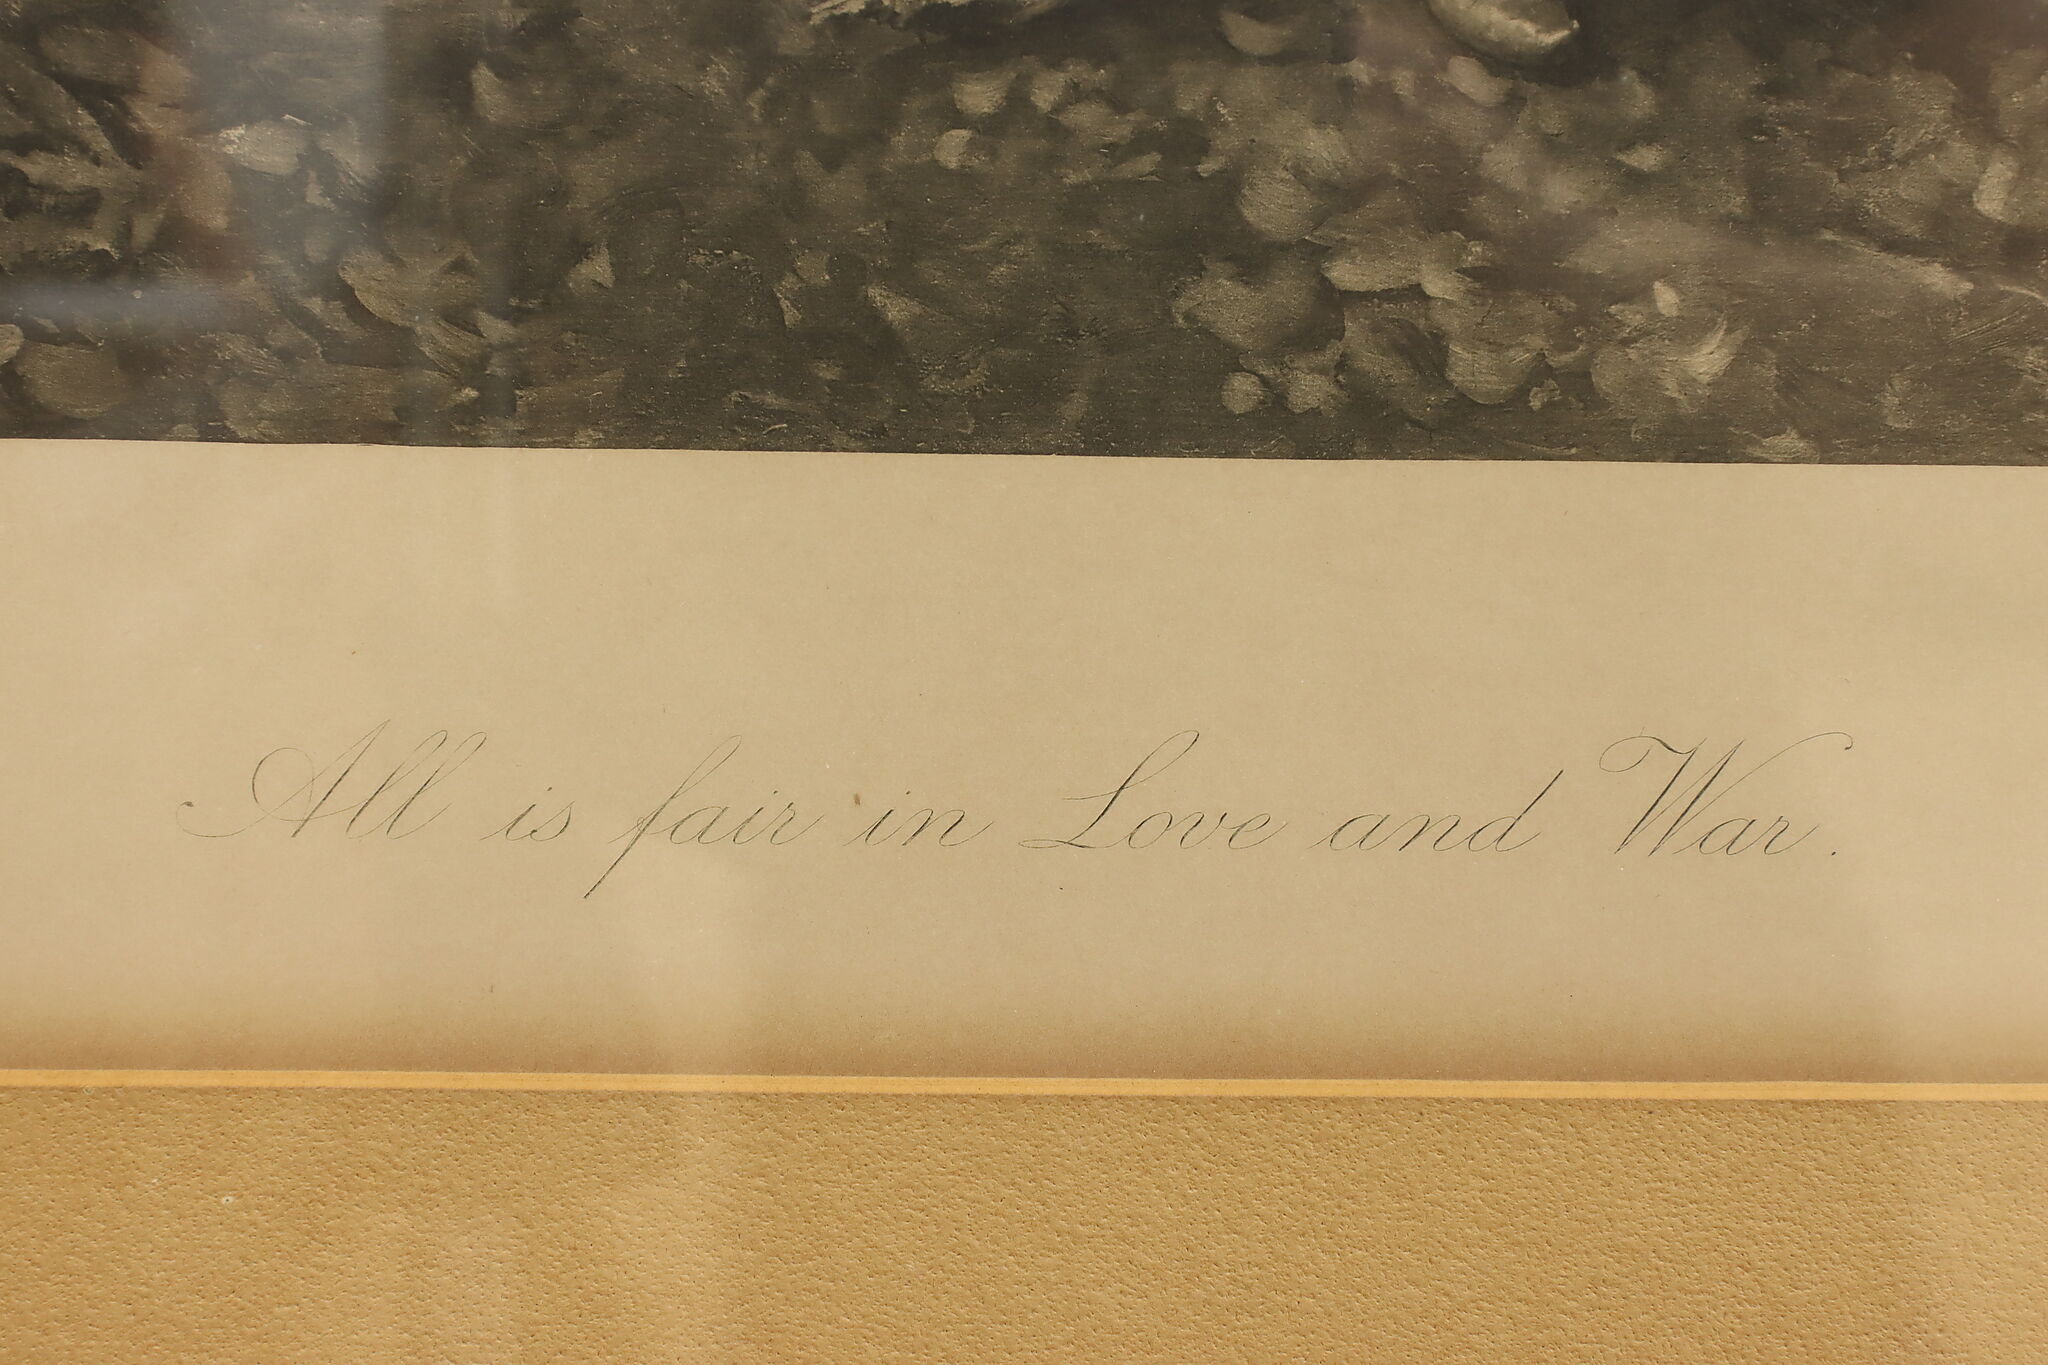 All is fair in Love and War.